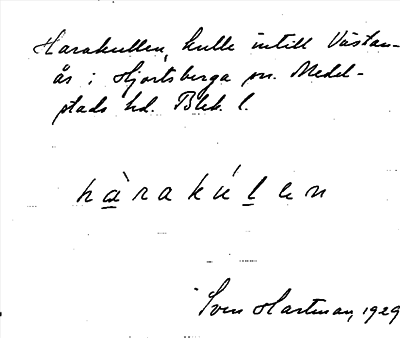 Harakullen, kulle intill Västan-
ås i Hjortsberga sn. Medel-
stads hd. Blek. l.
hàrakúlen
Sven Hartman, 1929